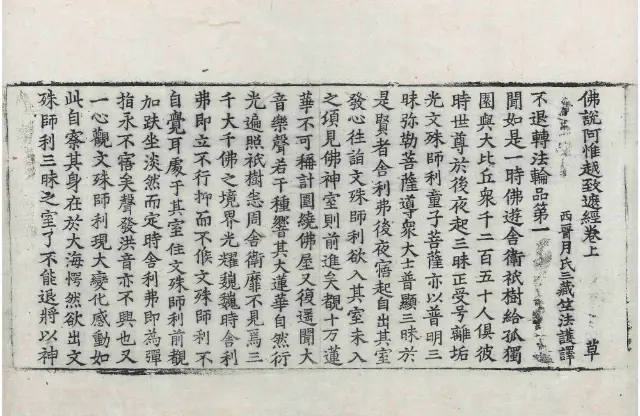 佛說阿惟越致遮經卷上 草
西晉月氏三藏竺法護譯
不退轉法輪品第一
聞如是一時佛遊舍衛祇樹給孤獨
園與大比丘衆千二百五十人俱彼
時世尊於後夜起三昧正受号離垢
光文殊師利童子菩薩亦以普明三
昧弥勒菩薩導衆大士普顯三昧於
是賢者舍利弗後夜寤起自出其室
發心往詣文殊師利欲入其室未入
之頃見佛神室則前進矣覩十万蓮
華不可稱計圍繞佛屋又復還聞大
音樂聲若干種響其大蓮華自然行
光遍照祇樹志周舍衛靡不見焉三
千大千佛之境界光耀巍巍時舍利
弗即立不行抑而不俟文殊師利不
自覺耳處于其室住文殊師利前覩
加趺坐淡然而定時舍利弗即為彈
指永不寤矣聲發洪音亦不興也又
一心觀文殊師利現大變化感動如
此自察其身在於大海愕然欲出文
殊師利三昧之室了不能退將以神